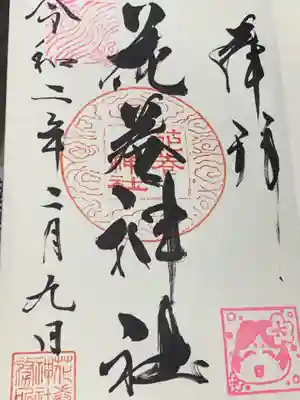 奉拝
花巻神社
令和二年二月九日